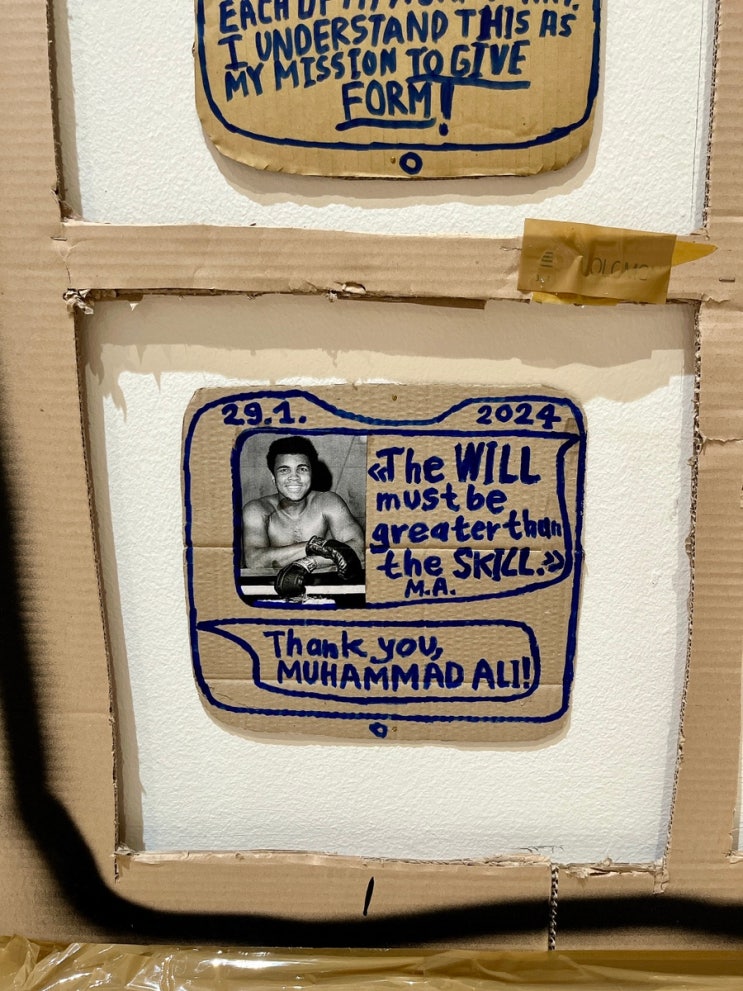 I UNDERSTAND THIS AS
MY MISSION TO GIVE
FORM!
29.1. 2024
«The WILL
must be
greater than
the SKILL.»
M.A.
Thank you,
MUHAMMAD ALI!